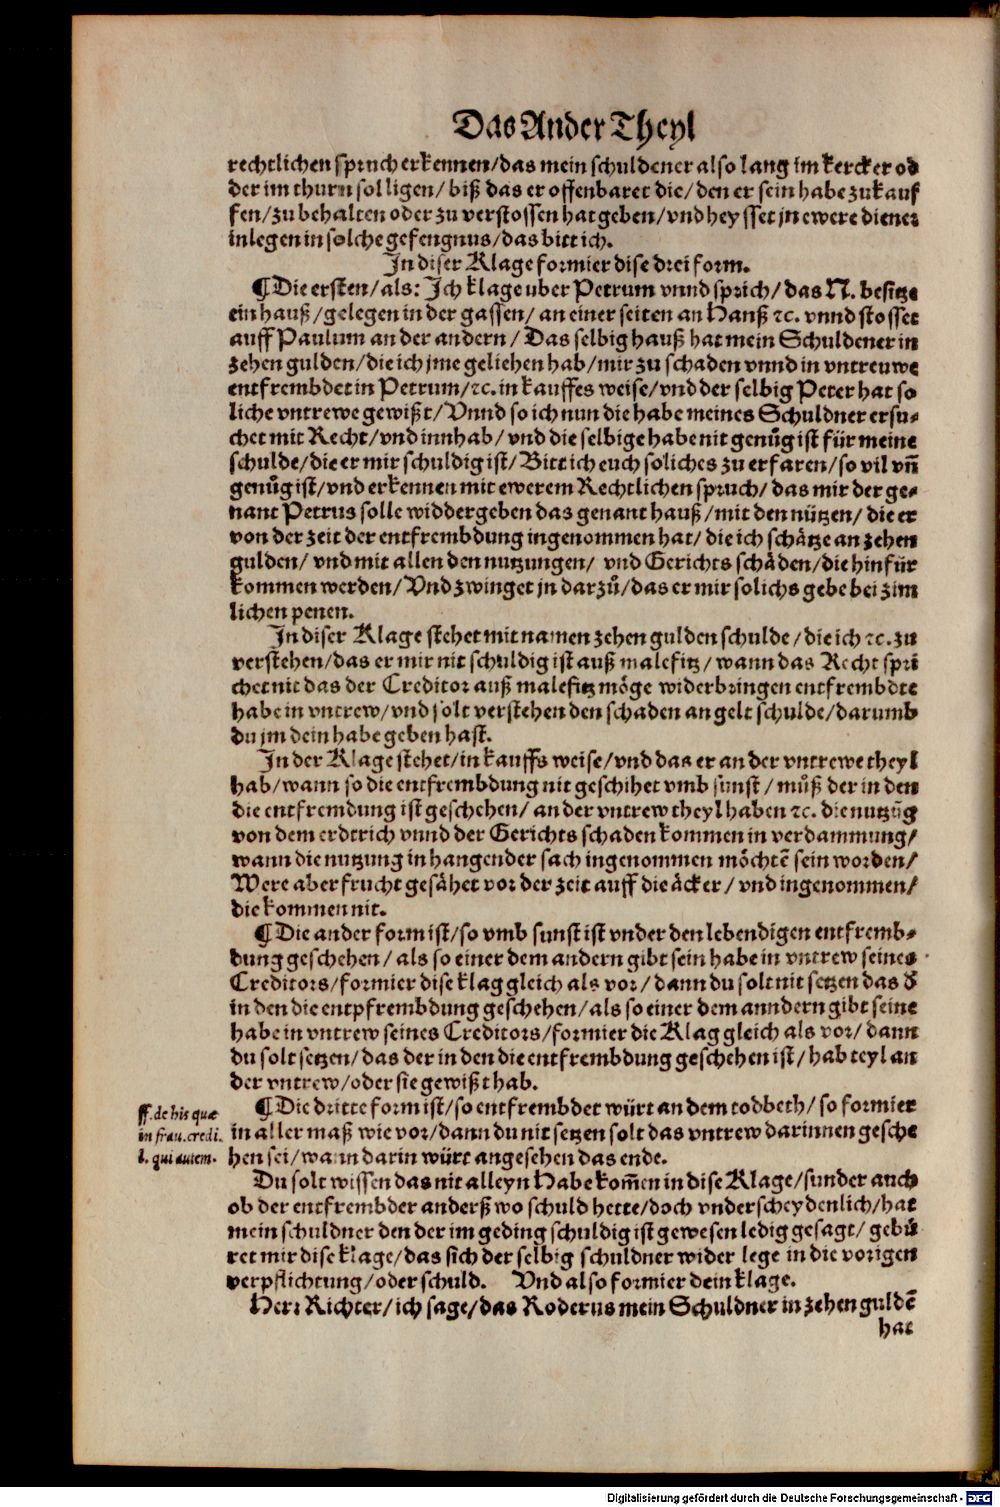 Das Ander Theyl
rechtlichen spruch erkennen/das mein schuldener also lang im kercker od
der im thurn sol ligen/ biß das er offenbaret die/den er sein habe zukauf
fen/zu behalten oder zu verstossen hat geben/vnd heysset jn ewere diener
inlegen in solche gefengnus/das bitt ich.
In diser Klage formier dise drei form.
¶ Die ersten/als: Ich klage uber Petrum vnnd sprich/das N. besitze
ein hauß/gelegen in der gassen/ an einer seiten an Hanß ꝛc. vnnd stosset
auff Paulum an der andern/ Das selbig hauß hat mein Schuldener in
zehen gulden/die ich jme geliehen hab/mir zu schaden vnnd in vntreuwe
entfrembdet in Petrum/ꝛc. in kauffes weise/vnd der selbig Peter hat so
liche vntrewe gewißt/Vnnd so ich nun die habe meines Schuldner ersu-
chet mit Recht/vnd innhab/vnd die selbige habe nit genůg ist für meine
schulde/die er mir schuldig ist/Bitt ich euch soliches zu erfaren/so vil vñ
genůg ist/vnd erkennen mit ewerem Rechtlichen spruch/das mir der ge-
nant Petrus solle widdergeben das genant hauß/mit den nützen/ die er
von der zeit der entfrembdung ingenommen hat/die ich schätze an zehen
gulden/ vnd mit allen den nutzungen/ vnd Gerichts schäden/die hinfür
kommen werden/Vnd zwinget jn darzů/das er mir solichs gebe bei zim
lichen penen.
In diser Klage stehet mit namen zehen gulden schulde/die ich ꝛc. zu
verstehen/das er mir nit schuldig ist auß malefitz/wann das Recht spri
chet nit das der Creditor auß malefitz möge widerbringen entfrembdte
habe in vntrew/vnd solt verstehen den schaden an gelt schulde/darumb
du jm dein habe geben hast.
In der Klage stehet/in kauffs weise/vnd das er an der vntrewe theyl
hab/wann so die entfrembdung nit geschihet vmb sunst/ můß der in den
die entfremdung ist geschehen/ an der vntrew theyl haben ꝛc. die nutzūg
von dem erdtrich vnnd der Gerichts schaden kommen in verdammung/
wann die nutzung in hangender sach ingenommen möchtē sein worden/
Were aber frucht gesähet vor der zeit auff die äcker/ vnd ingenommen/
die kommen nit.
¶ Die ander form ist/so vmb sunst ist vnder den lebendigen entfremb-
dung geschehen/ als so einer dem andern gibt sein habe in vntrew seines
Creditors/formier dise klag gleich als vor/ dann du solt nit setzen das ď
in den die entpfrembdung geschehen/als so einer dem anndern gibt seine
habe in vntrew seines Creditors/formier die Klag gleich als vor/ dann
du solt setzen/das der in den die entfrembdung geschehen ist/hab teyl an
der vntrew/oder sie gewißt hab.
¶ Die dritte form ist/so entfrembdet würt an dem todbeth/so formier
in aller maß wie vor/dann du nit setzen solt das vntrew darinnen gesche
hen sei/wann darin würt angesehen das ende.
ff. de his quæ
in frau. credi.
l. qui autem.
Du solt wissen das nit alleyn Habe kom̄en in dise Klage/sunder auch
ob der entfrembder anderß wo schuld hette/doch vnderscheydenlich/hat
mein schuldner den der im geding schuldig ist gewesen ledig gesagt/ gebü
ret mir dise klage/das sich der selbig schuldner wider lege in die vorigen
verpflichtung/oder schuld. Vnd also formier dein klage.
Herr Richter/ich sage/das Roderus mein Schuldner in zehen guldē
hat
Digitalisierung gefördert durch die Deutsche Forschungsgemeinschaft - DFG